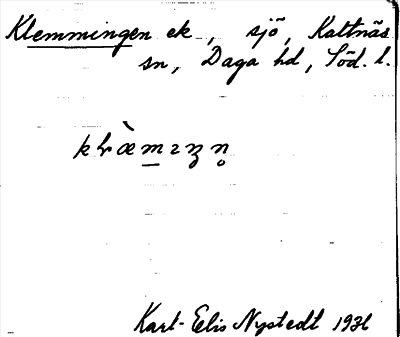 Klemmingen ek, sjö, Kattnäs
sn, Daga hd, Söd. l.
Karl-Eelis Nystedt 1936